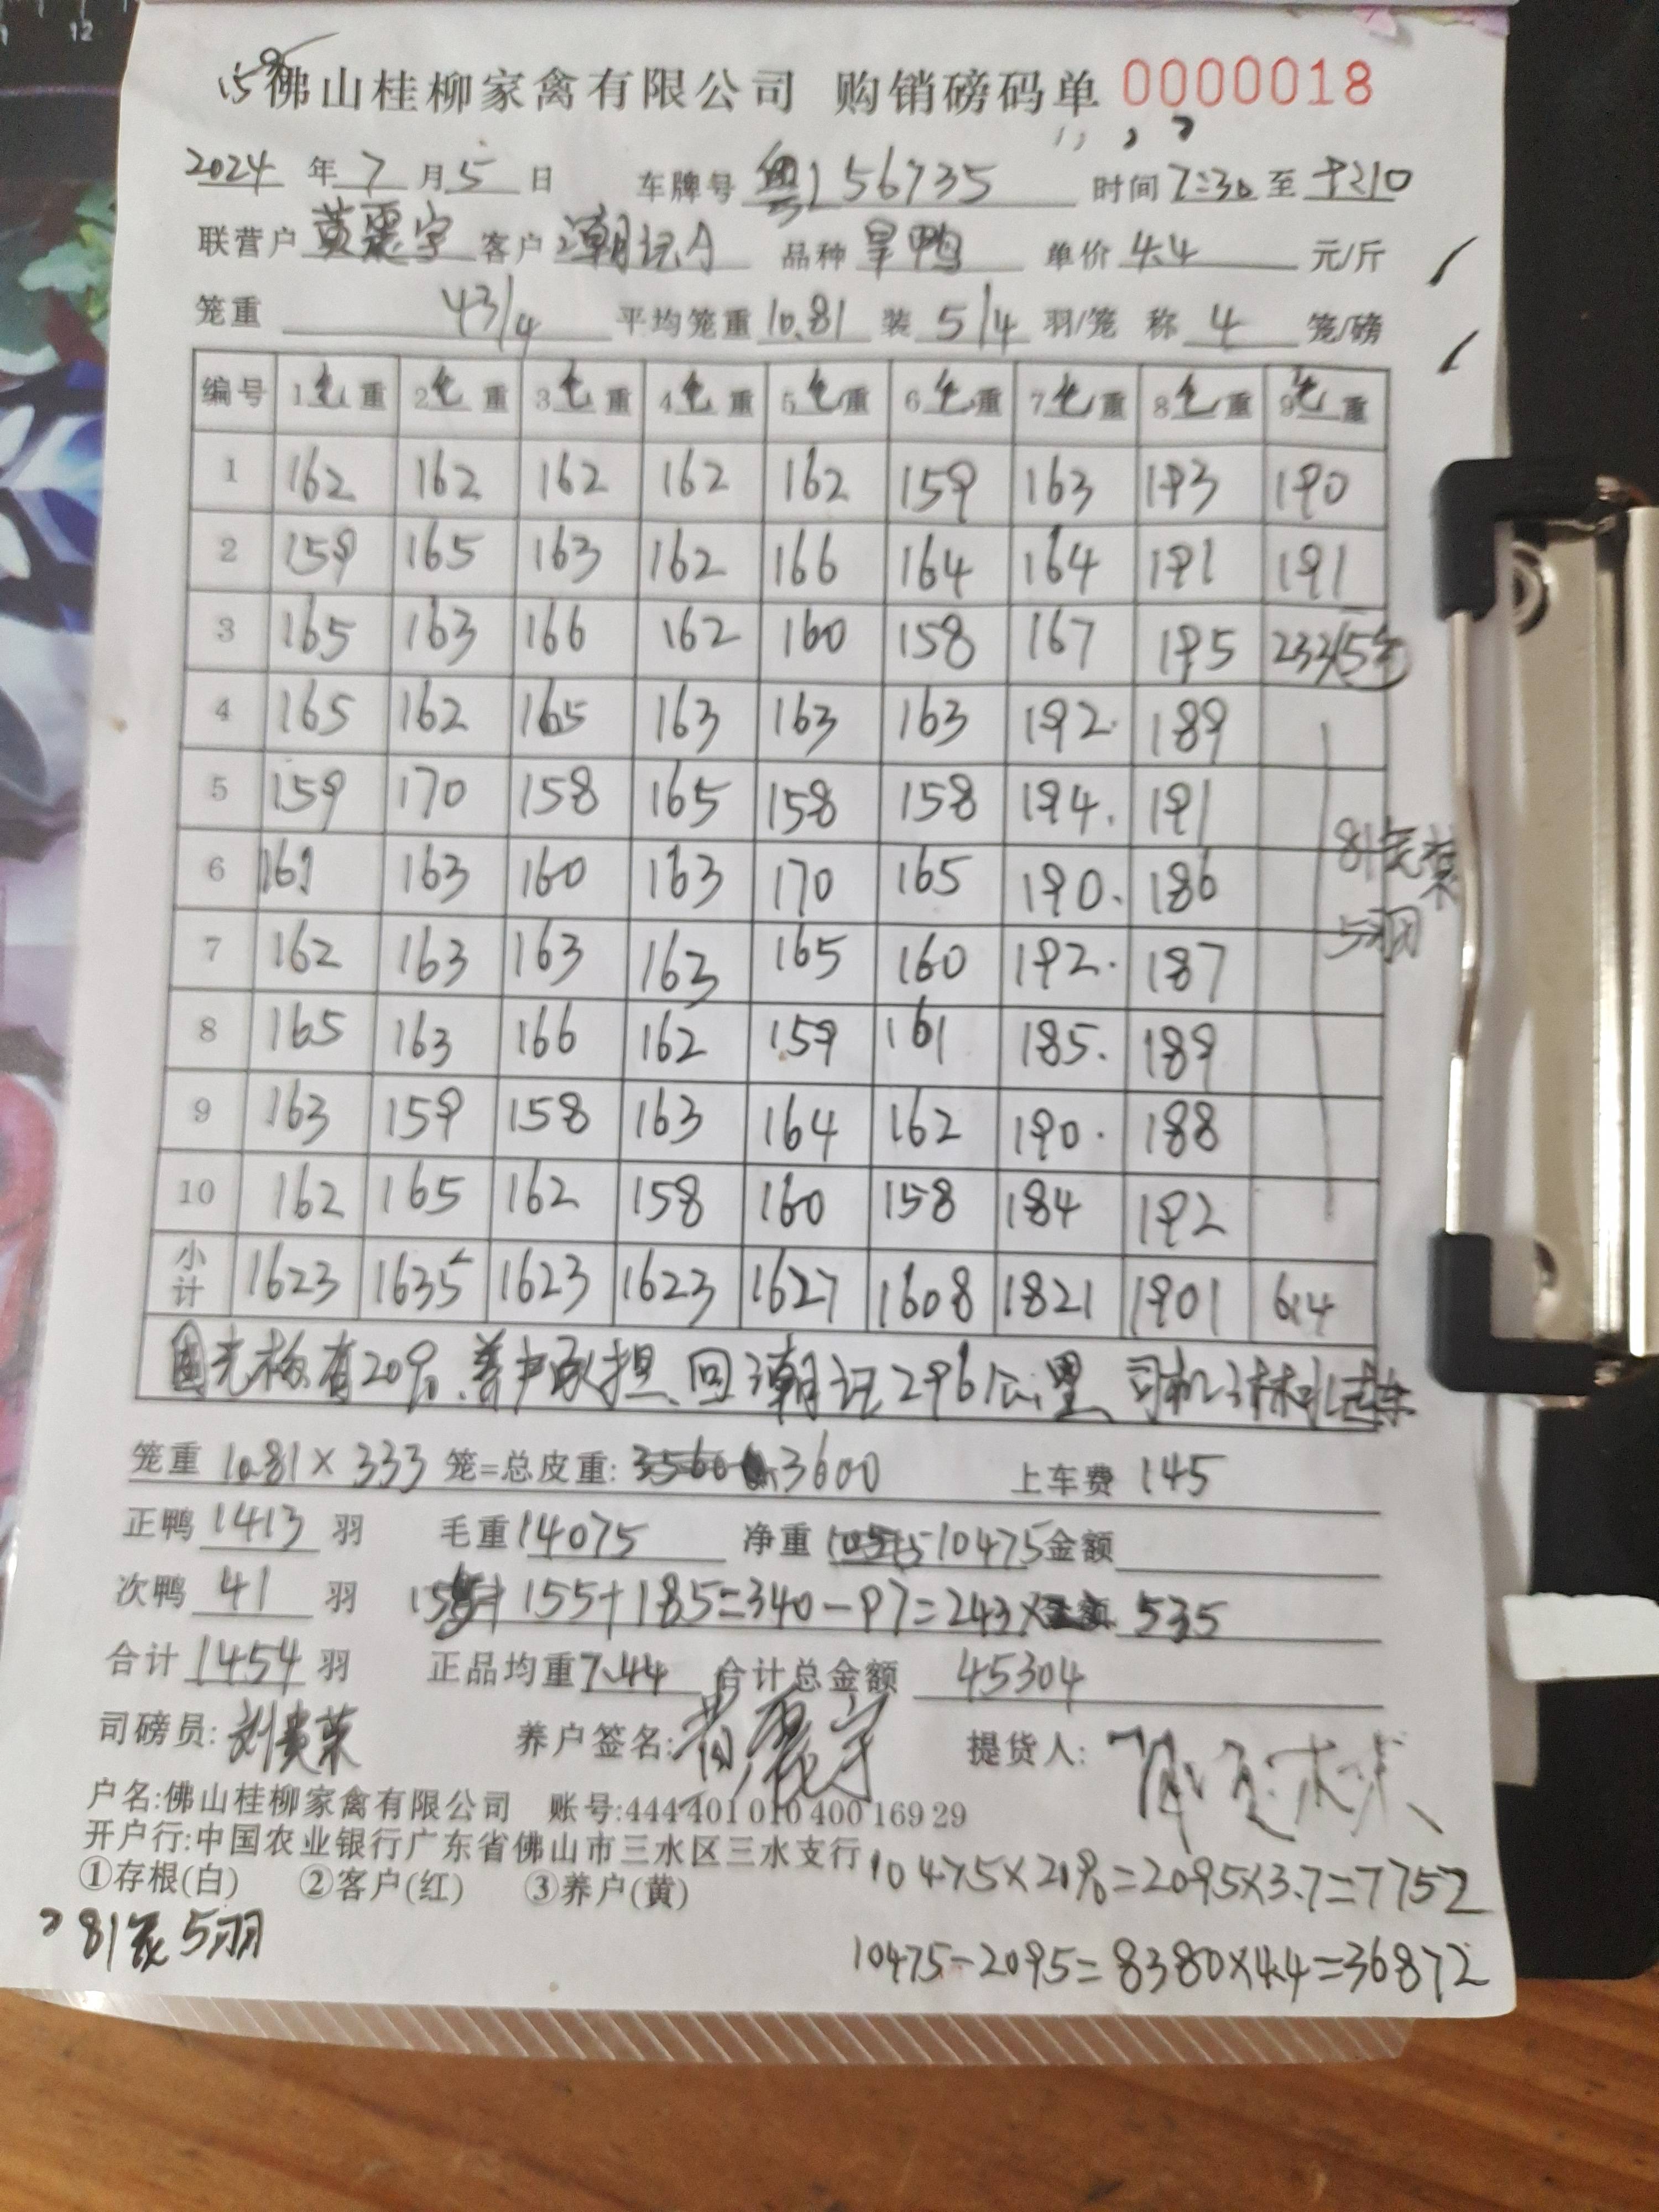 佛山桂柳家禽有限公司 购销磅码单 0000018
2024 年 7 月 5 日 车牌号 粤J56735 时间 7:30 至
联营户 黄 宇 客户 潮记 品种 旱鸭 单价 4.4 元/斤
笼重 43/4 平均笼重 10.81 装 5/4 羽/笼 称 4 笼/磅
编号 1毛重 2毛重 3毛重 4毛重 5毛重 6毛重 7毛重 8毛重 9毛重
1 162 162 162 162 162 159 163 193 190
2 159 165 163 162 166 164 164 191 191
3 165 163 166 162 160 158 167 195 233/5笼
4 165 162 165 163 163 163 192. 189
5 159 170 158 165 158 158 194. 191
6 161 163 160 163 170 165 190. 186
7 162 163 163 163 165 160 192. 187
8 165 163 166 162 159 161 185. 189
9 163 159 158 163 164 162 190. 188
10 162 165 162 158 160 158 184 192
81笼装
5羽
小计 1623 1635 1623 1623 1627 1608 1821 1901 614
光板有20%、养户承担、回潮记296公里、司机
笼重 10.81 × 333 笼=总皮重: 3600 上车费 145
正鸭 1413 羽 毛重 14075 净重 10475 金额
次鸭 41 羽 155+185=340-97=243× 535
合计 1454 羽 正品均重 7.44 合计总金额 45304
司磅员: 刘贵荣 养户签名: 提货人:
户名:佛山桂柳家禽有限公司 账号:444 401 010 400 169 29
开户行:中国农业银行广东省佛山市三水区三水支行
①存根(白) ②客户(红) ③养户(黄)
10475×20%=2095×3.7=7752
81笼5羽
10475-2095=8380×4.4=36872